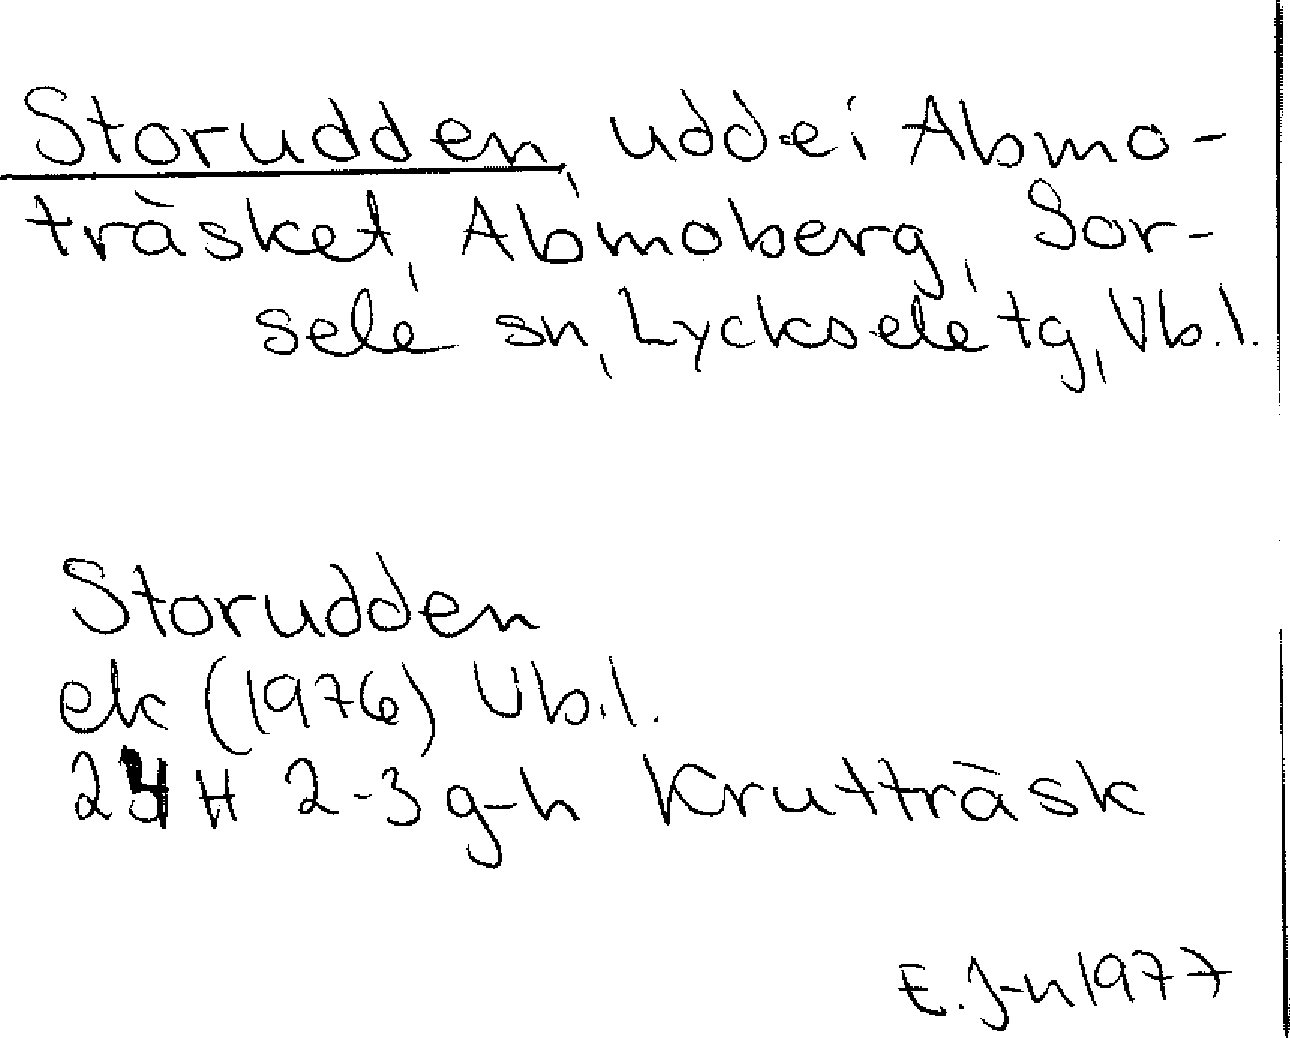 Storudden, udde i Abmo-
träsket, Abmoberg, Sor-
sele sn, Lycksele tg, Vb.l.
Storudden
ek (1976) Vb.l.
24 H 2-3 g-h Krutträsk
E. J-n 1977